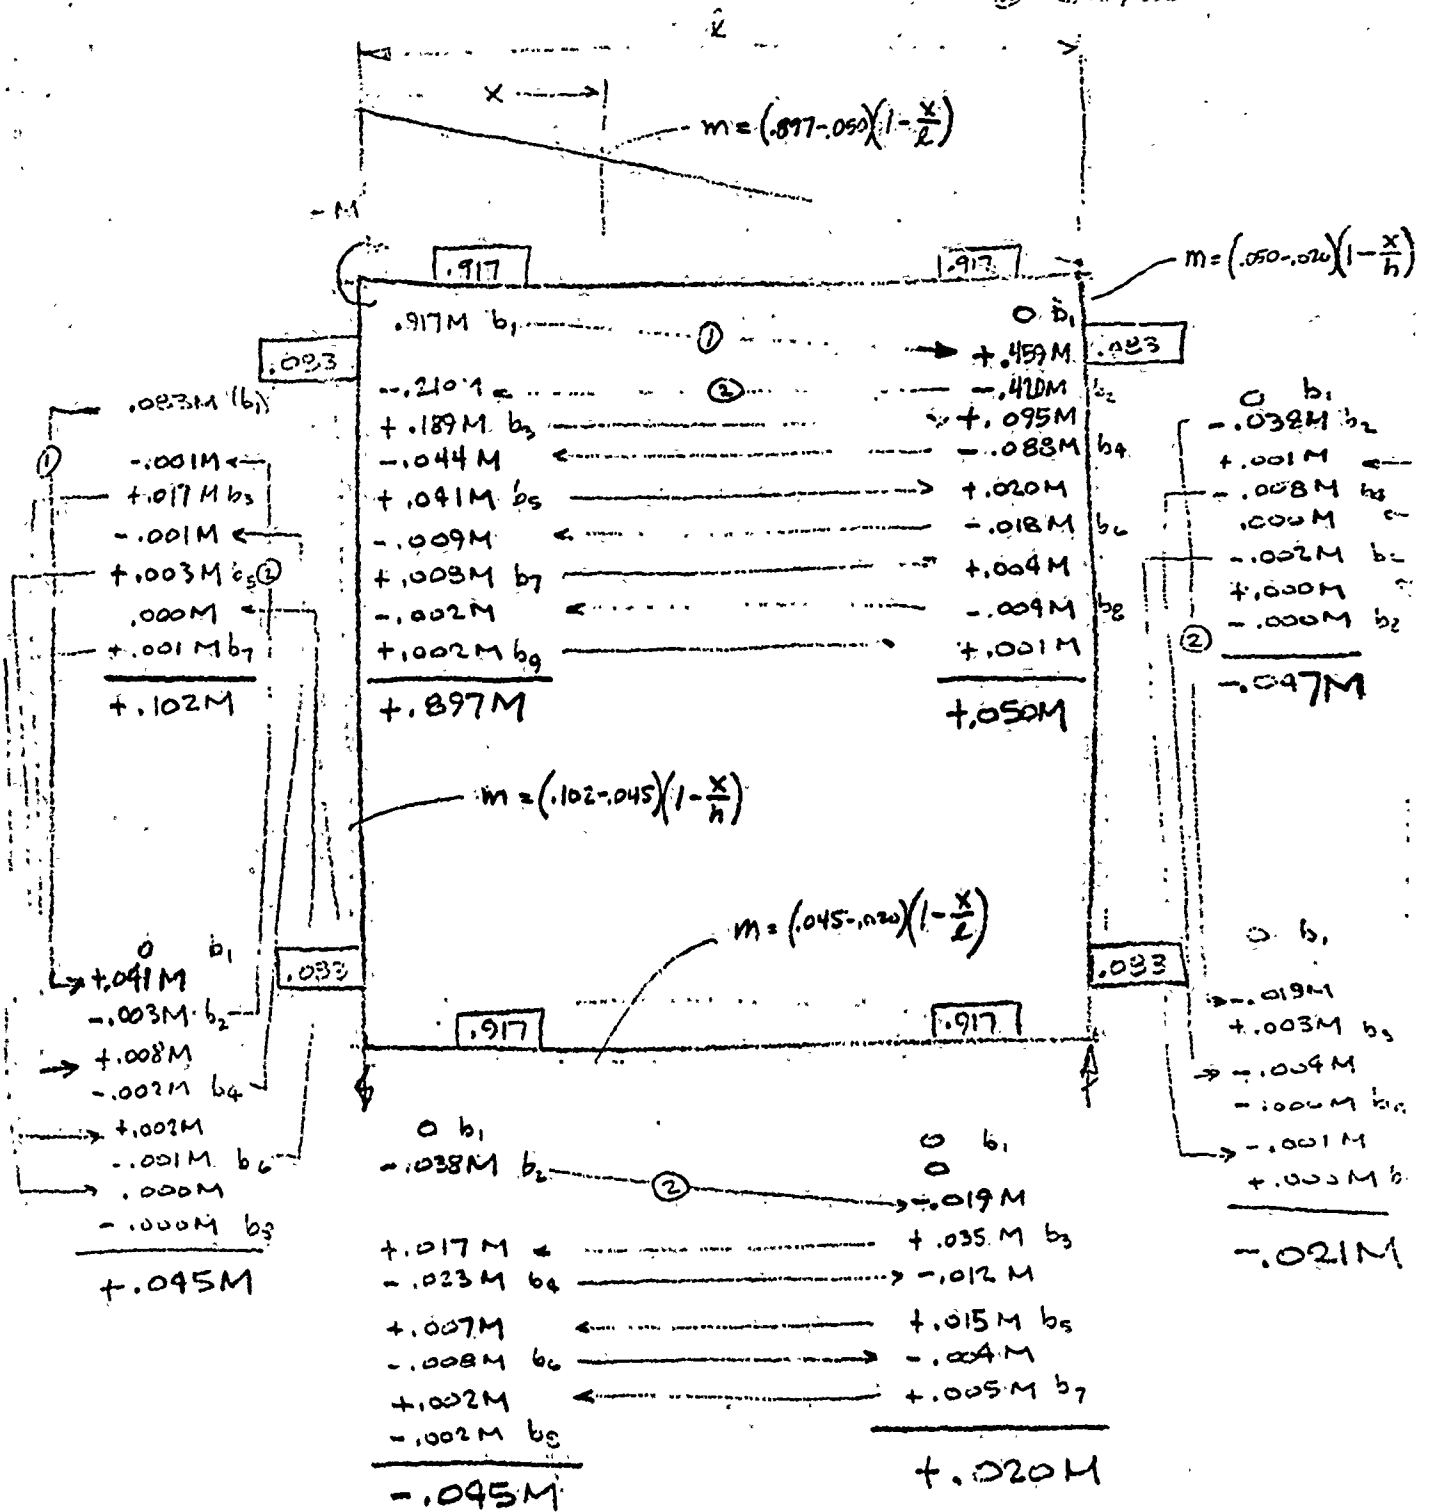 l
x
m = (.897-.050)(1 - x/l)
- M
.917
.917
m = (.050-.020)(1 - x/h)
.917M b1
①
0 b1
+.459M
.083
.083
-.210M
②
-.420M b2
+.189M b3
+.095M
-.044M
-.088M b4
+.041M b5
+.020M
-.009M
-.018M b6
+.008M b7
+.004M
-.002M
-.004M b8
+.002M b9
+.001M
+.897M
+.050M
.083M (b1)
①
-.001M
+.017M b3
-.001M
+.003M b5
②
.000M
+.001M b7
+.102M
0 b1
-.038M b2
+.001M
-.008M
.000M
-.002M
+.000M
-.000M b2
②
-.047M
m = (.102-.045)(1 - x/h)
m = (.045-.020)(1 - x/l)
0 b1
+.041M
-.003M b2
+.008M
-.002M b4
+.002M
-.001M b6
.000M
-.000M b8
+.045M
.083
.083
.917
.917
0 b1
-.038M b2
②
+.017M
-.023M b4
+.007M
-.008M b6
+.002M
-.002M b8
-.045M
0 b1
0
-.019M
+.035M b3
-.012M
+.015M b5
-.004M
+.005M b7
+.020M
0 b1
-.019M
+.003M
-.004M
-.001M
+.000M b
-.021M